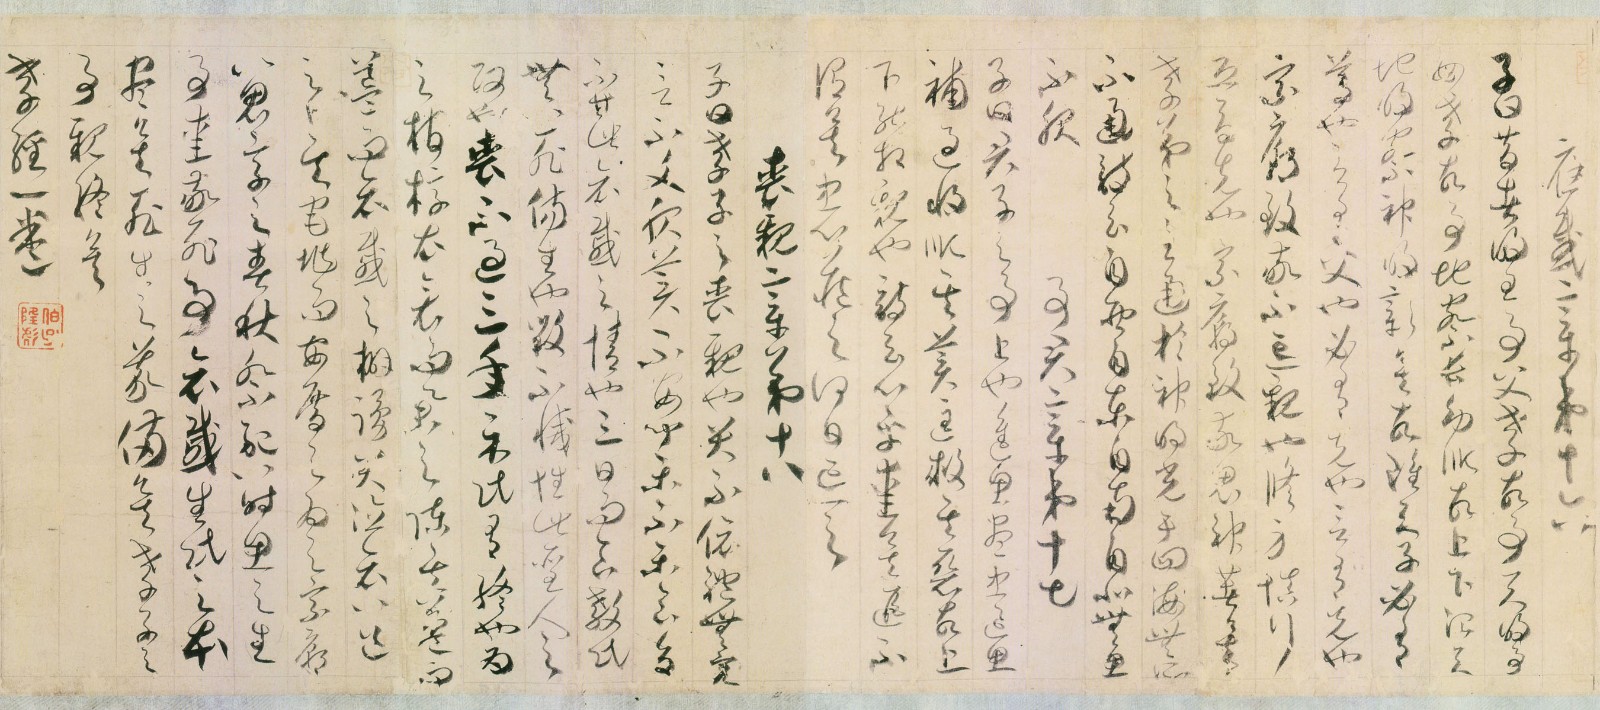 應感章第十六
子曰昔者明王事父孝故事天明事
母孝故事地察長幼順故上下治天
地明察神明彰矣故雖天子必有
尊也言有父也必有先也言有兄也
宗廟致敬不忘親也脩身慎行
恐辱先也宗廟致敬鬼神著矣
孝弟之至通於神明光于四海無所
不通詩云自西自東自南自北無思
不服　事君章第十七
子曰君子之事上也進思盡忠退思
補過將順其美匡救其惡故上
下能相親也詩云心乎愛矣遐不
謂矣忠心藏之何日忘之
喪親章第十八
子曰孝子之喪親也哭不偯禮無容
言不文服美不安聞樂不樂食旨
不甘此哀戚之情也三日而食教民
無以死傷生也毀不滅性此聖人之
政也喪不過三年示民有終也為
之棺椁衣衾而舉之陳其簠簋而
哀戚之擗踊哭泣哀以送
之卜其宅兆而安厝之為之宗廟
以鬼享之春秋祭祀以時思之生
事愛敬死事哀戚生民之本
盡矣死生之義備矣孝子之
事親終矣
孝經一卷